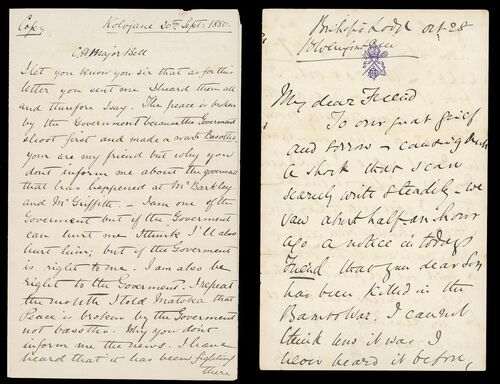 Copy Kolojane 20th Septr: 1880.
C.H. Major Bell
I let you know you sir that as for this
letter you sent me I heard them all
and therefore I say. The peace is broken
by the Government because the Goverment
shoot first and made a war to Basottos
your are my friend but why you
dont inform me about the goverment
that has happened at Mr Barkley
and Mr Griffith. - I am one of the
Goverment but if the Goverment
can hurt me I think I'll also
hurt him; but if the Goverment
is right to me. I am also be
right to the Goverment. I repeat
the month I told Matoka that
Peace is broken by the Goverment
not basottos. Why you dont
inform me the news. I have
heard that it has been fighting
there
Bishop's Lodge Oct 28
My dear Friend
To our great grief
and sorrow - causing
a shock that I can
scarcely write steadily - we
saw about half-an-hour
ago a notice in todays
Friend that your dear Son
has been killed in the
Basuto War. I cannot
think how it was. I
never heard it before,